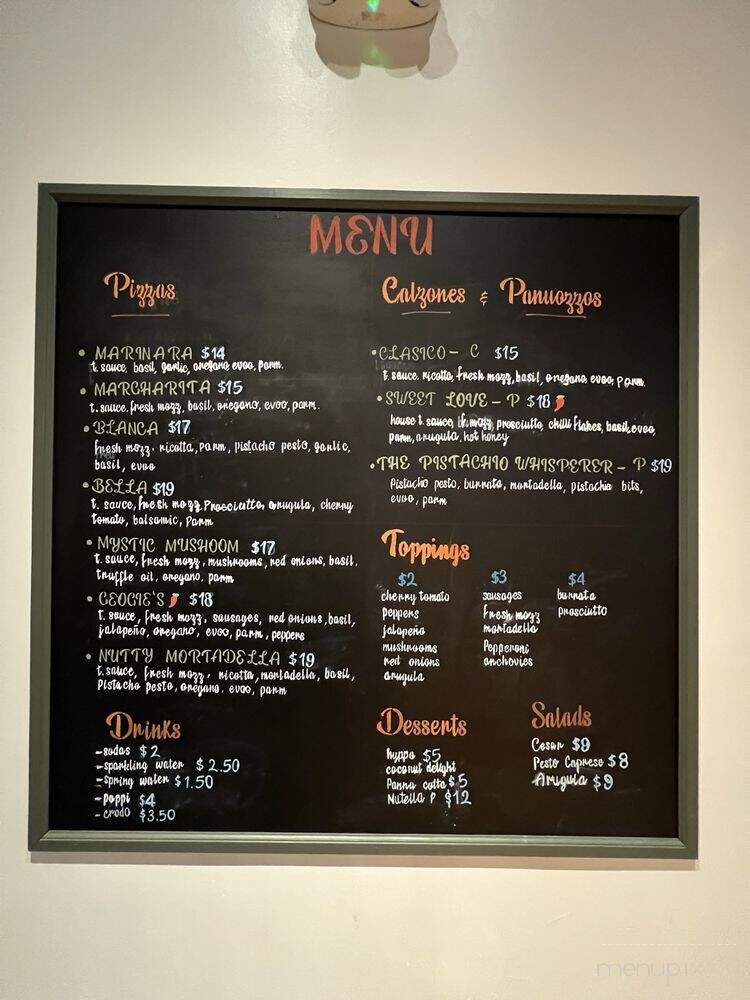 MENU
Pizzas
• MARINARA $14
t. sauce, basil, garlic, oregano, evoo, parm.
• MARGHARITA $15
t. sauce, fresh mozz, basil, oregano, evoo, parm.
• BLANCA $17
fresh mozz, ricotta, parm, pistachio pesto, garlic,
basil, evoo
• BELLA $19
t. sauce, fresh mozz, Prosciutto, arugula, cherry
tomato, balsamic, Parm
• MYSTIC MUSHOOM $17
t. sauce, fresh mozz, mushrooms, red onions, basil,
truffle oil, oregano, parm
• GEOGIE'S $18
t. sauce, fresh mozz, sausages, red onions, basil,
jalapeño, oregano, evoo, parm, peppers
• NUTTY MORTADELLA $19
t. sauce, fresh mozz, ricotta, mortadella, basil,
Pistacho pesto, oregano, evoo, parm
Calzones & Panuozzos
• CLASICO - C $15
t. sauce, ricotta, fresh mozz, basil, oregano, evoo, parm.
• SWEET LOVE - P $18
house t. sauce, mozz, prosciutto, chilli flakes, basil, evoo,
parm, arugula, hot honey
• THE PISTACHIO WHISPERER - P $19
Pistachio pesto, burrata, mortadella, pistachio bits,
evoo, parm
Toppings
$2
cherry tomato
peppers
jalapeño
mushrooms
red onions
arugula
$3
sausages
fresh mozz
mortadella
Pepperoni
anchovies
$4
burrata
prosciutto
Drinks
- sodas $2
- sparkling water $2.50
- spring water $1.50
- poppi $4
- crodo $3.50
Desserts
hyppo $5
coconut delight
Panna cotta $5
Nutella P $12
Salads
Cesar $9
Pesto Caprese $8
Arugula $9
menupix